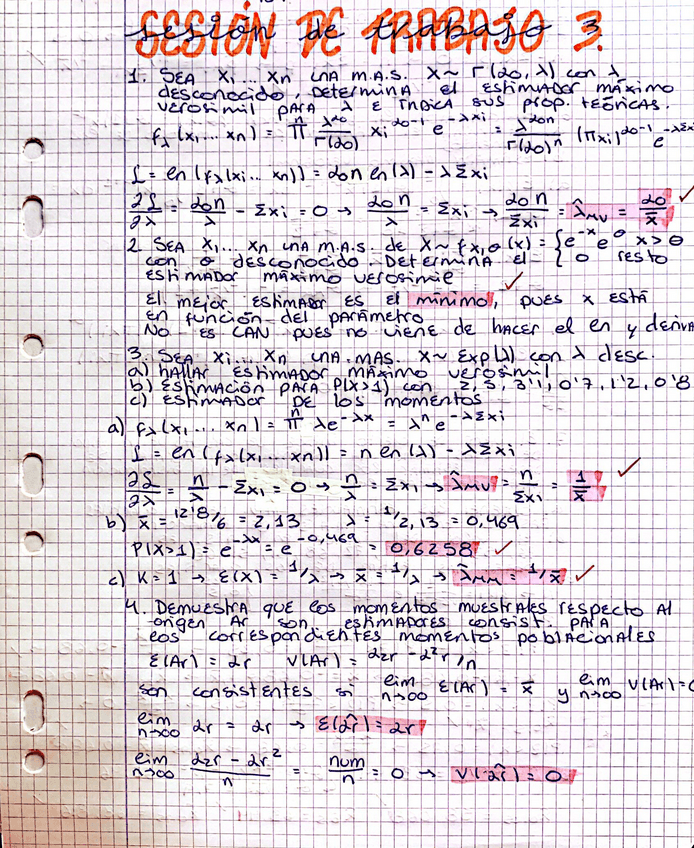 SESIÓN DE TRABAJO 3.
sesión de trabajo
1. SEA X₁... Xn UNA M.A.S. X~ Γ(α₀, λ) con λ
desconocido, DETERMINA el estimador máximo
verosímil PARA λ E INDICA SUS PROP. TEÓRICAS.
f_λ(x₁... xn) = ∏ⁿ λ^α₀/Γ(α₀) xi^(α₀-1) e^(-λxi) = λ^(α₀n)/Γ(α₀)ⁿ (∏xi)^(α₀-1) e^(-λΣxi
L = ln(f_λ(x₁... xn)) = α₀n ln(λ) - λΣxi
∂L/∂λ = α₀n/λ - Σxi = 0 → α₀n/λ = Σxi → α₀n/Σxi = λ̂_MV = α₀/x̄ ✓
2. SEA X₁... Xn UNA M.A.S. de X~ f_x,θ(x) = { e^-x e^θ x>θ
con θ desconocido. Determina el 0 resto
ESTIMADOR MÁXIMO VEROSIMIL ✓
El mejor ESTIMADOR ES El mínimo, pues x está
en función del parámetro
No es CAN pues no viene de hacer el ln y deriva
3. SEA Xi... Xn UNA. MAS. X~ Exp(λ) con λ desc.
a) HALLAR ESTIMADOR MÁXIMO VEROSIMIL
b) ESTIMACIÓN PARA P(X>1) con 2, 5, 3'1, 0'7, 1'2, 0'8
c) ESTIMADOR DE LOS MOMENTOS
a) f_λ(x₁... xn) = ∏ⁿ λe^(-λx) = λⁿ e^(-λΣxi)
L = ln(f_λ(x₁... xn)) = n ln(λ) - λΣxi
∂L/∂λ = n/λ - Σxi = 0 → n/λ = Σxi → λ̂_MV = n/Σxi = 1/x̄ ✓
b) x̄ = 12'8/6 = 2,13 λ = 1/2,13 = 0,469
P(X>1) = e^(-λx) = e^(-0,469) = 0,6258 ✓
c) K=1 → E(X) = 1/λ → x̄ = 1/λ → λ̂_MM = 1/x̄ ✓
4. DEMUESTRA QUE LOS MOMENTOS MUESTRALES RESPECTO Al
origen Ar son ESTIMADORES CONSIST. PARA
LOS CORRESPONDIENTES MOMENTOS POBLACIONALES
E(Ar) = αr V(Ar) = α₂r - α²r/n
son consistentes si lim n→∞ E(Ar) = x̄ y lim n→∞ V(Ar) = 0
lim n→∞ αr = αr → E(α̂r) = αr
lim n→∞ α₂r - αr²/n = num/n = 0 → V(α̂r) = 0